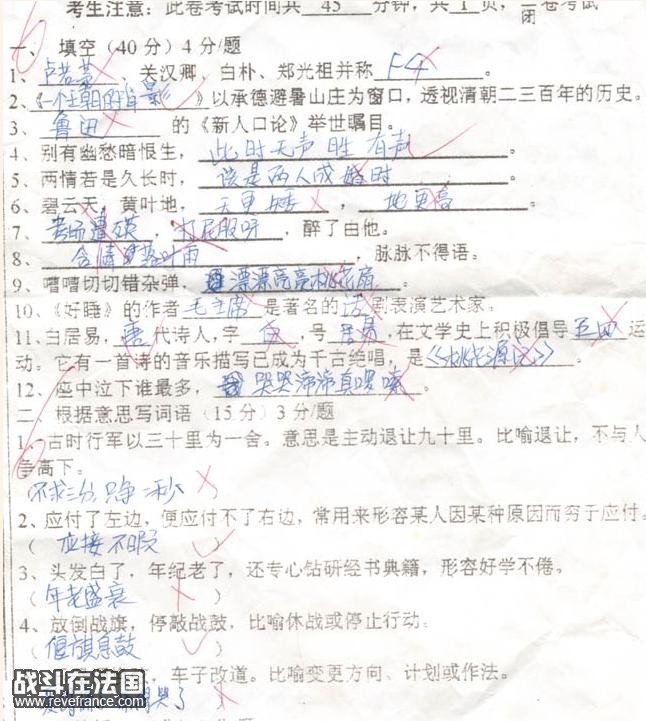 考生注意：此卷考试时间共 45 分钟，共 1 页，闭卷考试
一、填空（40分）4分/题
1、卢若蒙，关汉卿，白朴、郑光祖并称F4。
2、《一个王朝的背影》以承德避暑山庄为窗口，透视清朝二三百年的历史。
3、鲁迅的《新人口论》举世瞩目。
4、别有幽愁暗恨生，此时无声胜有声。
5、两情若是久长时，该是两人成婚时。
6、碧云天，黄叶地，天更矮，地更高。
7、，，醉了由他。
8、，脉脉不得语。
9、嘈嘈切切错杂弹，漂漂亮亮桃花扇。
10、《好睡》的作者毛主席是著名的话剧表演艺术家。
11、白居易，唐代诗人，字白，号居易，在文学史上积极倡导五四运
动。它有一首诗的音乐描写已成为千古绝唱，是《桃花源记》。
12、座中泣下谁最多，哭哭沛沛真啰嗦。
二 根据意思写词语（15分）3分/题
1、古时行军以三十里为一舍。意思是主动退让九十里。比喻退让，不与人
争高下。
不求三分，只争一秒
2、应付了左边，便应付不了右边，常用来形容某人因某种原因而穷于应付。
（应接不暇）
3、头发白了，年纪老了，还专心钻研经书典籍，形容好学不倦。
（年老盛衰）
4、放倒战旗，停敲战鼓，比喻休战或停止行动。
（偃旗息鼓）
车子改道。比喻变更方向、计划或作法。
哭了
战斗在法国
www.revefrance.com